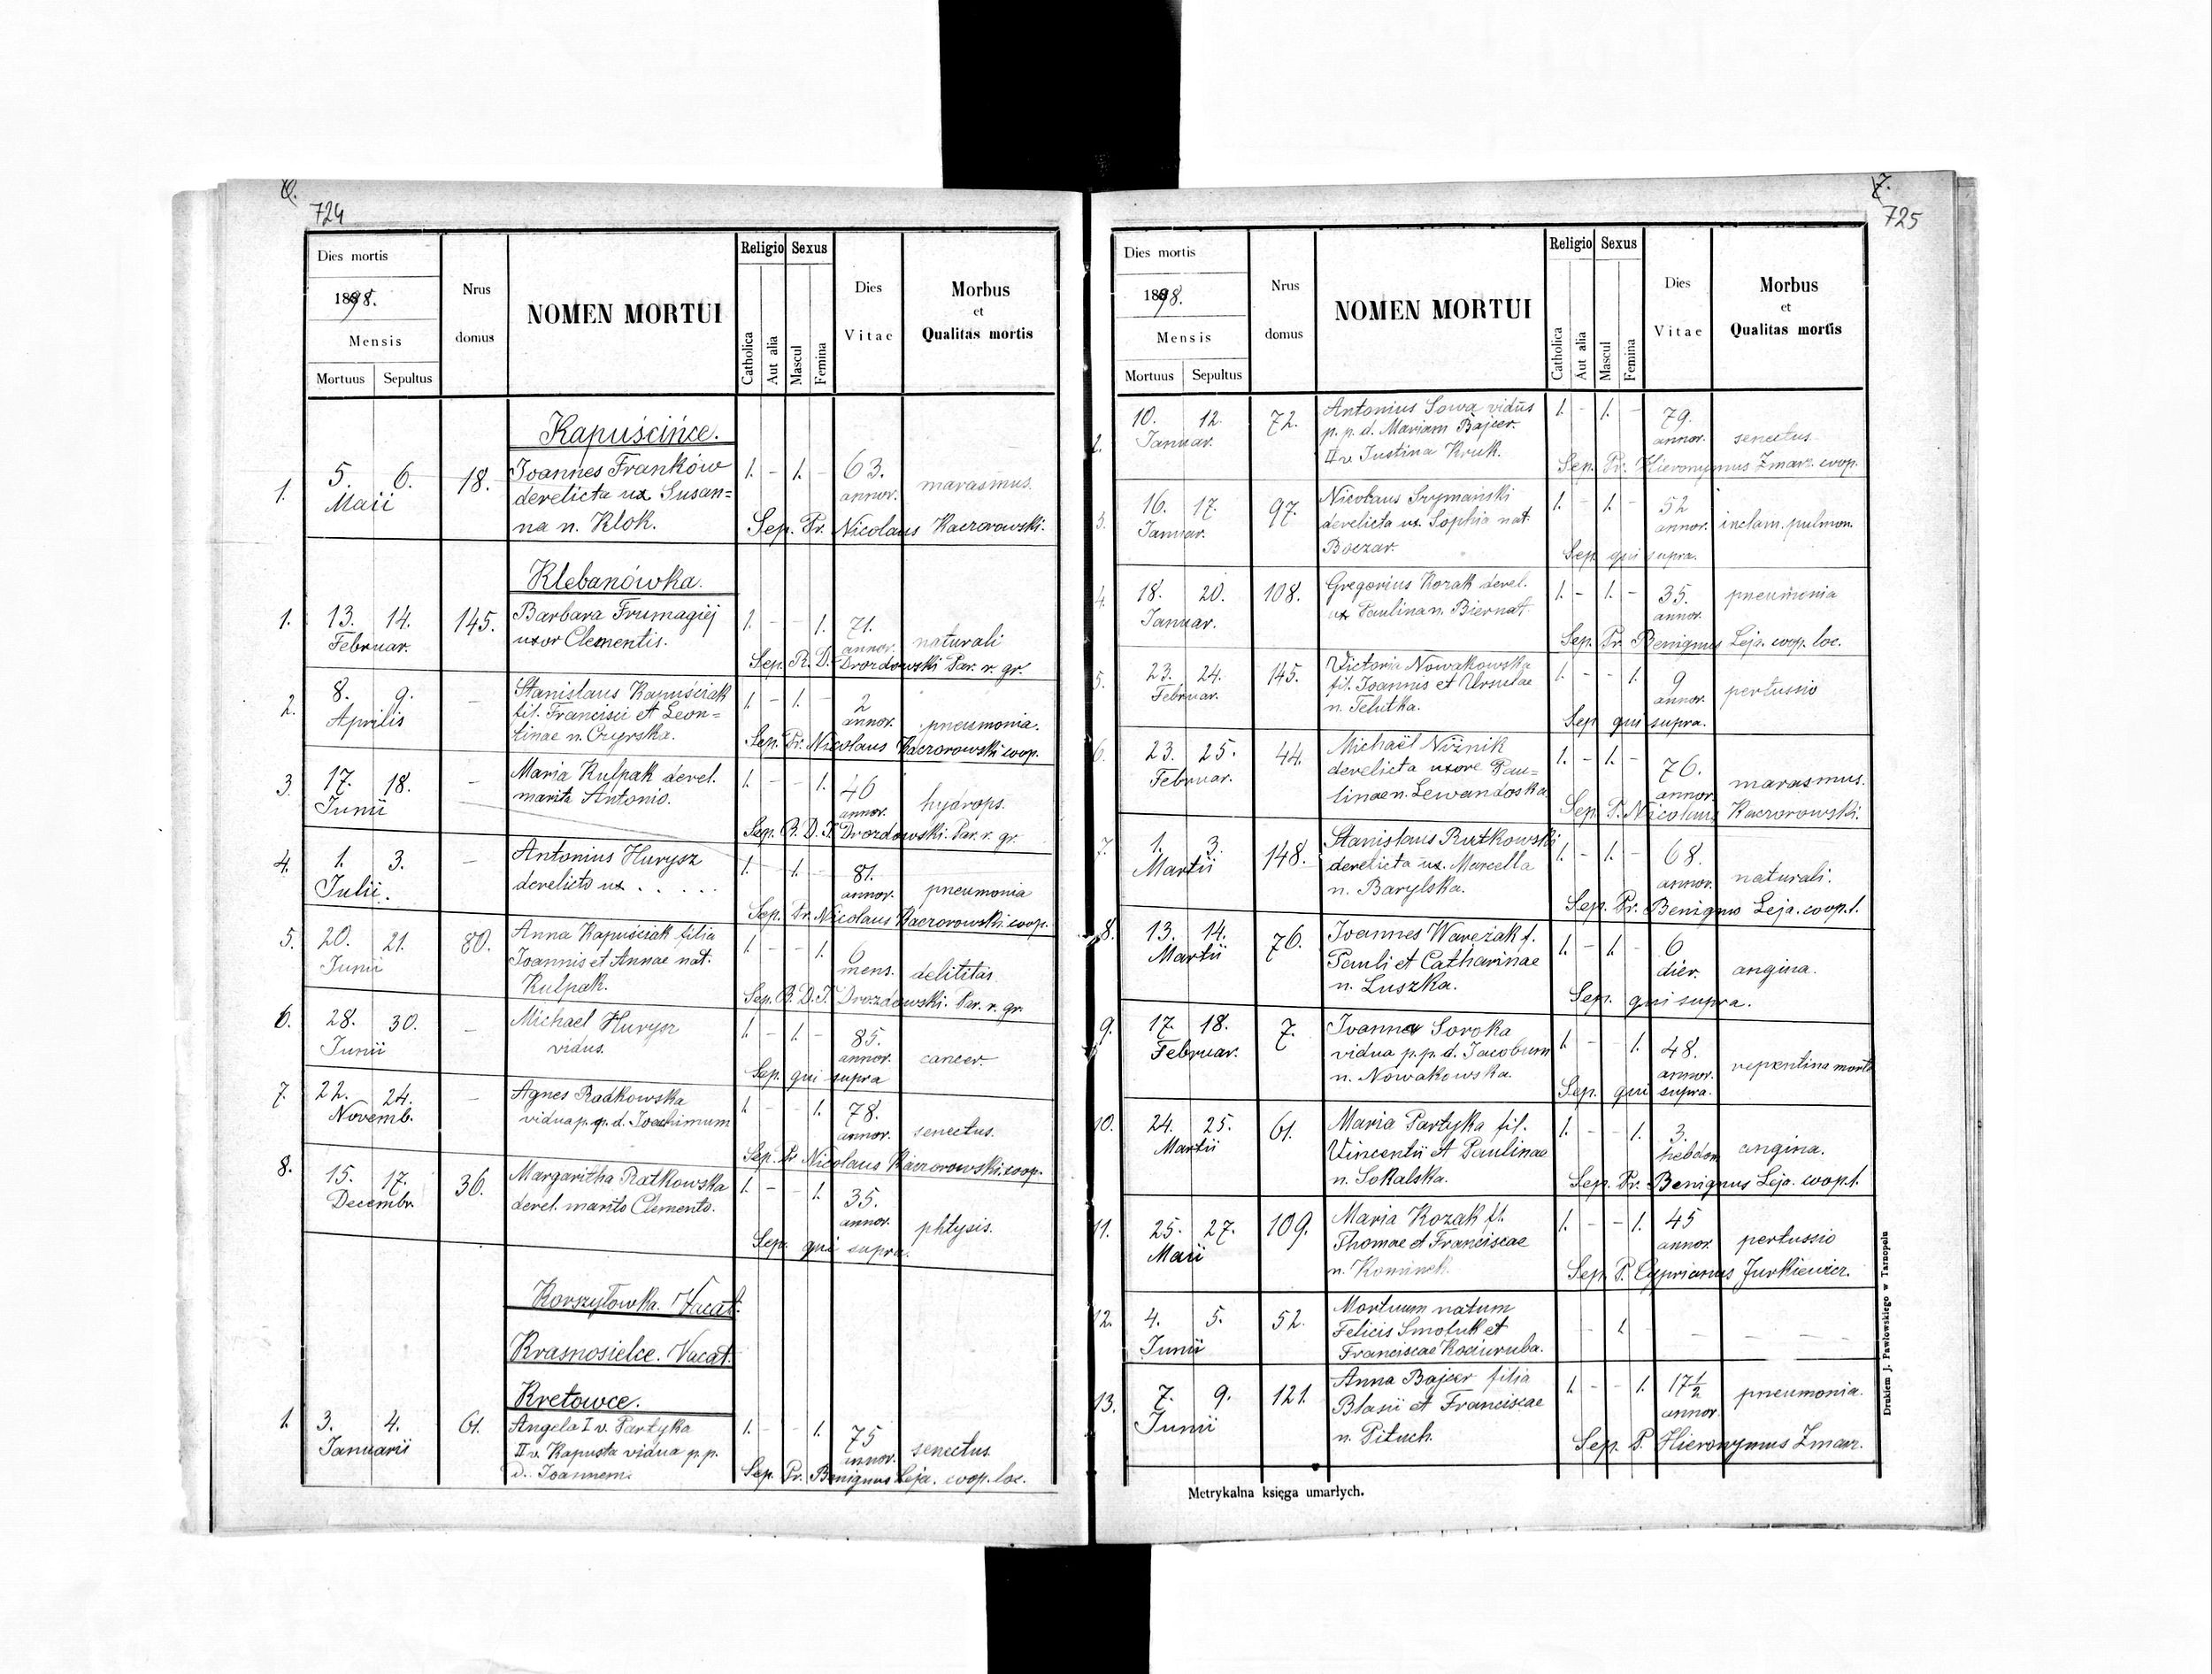 724
Dies mortis
1898.
Mensis
Mortuus Sepultus
Nrus
domus
NOMEN MORTUI
Religio Sexus
Catholica
Aut alia
Mascul
Femina
Dies
Vitae
Morbus
et
Qualitas mortis
Kapuścińce.
1. 5. 6. 18. Joannes Franków 1. - 1. - 63.
Maii derelicta ux Susan= annor. marasmus.
na n. Klok. Sep. Pr. Nicolaus Kaczorowski.
Klebanówka.
1. 13. 14. 145. Barbara Frumagiej 1. - - 1. 71.
Februar. uxor Clementis. annor. naturali
Sep. R. D. Drozdowski Par. r. gr.
2. 8. 9. - Stanislaus Kapuściak 1. - 1. - 2
Aprilis fil. Francisci et Leon= annor. pneumonia.
tinae n. Czyrska. Sep. Pr. Nicolaus Kaczorowski coop.
3. 17. 18. - Maria Kulpak derel. 1. - - 1. 40
Junii marito Antonio. annor. hydrops.
Sep. R. D. T. Drozdowski. Par. r. gr.
4. 1. 3. - Antonius Hurysz 1. - 1. - 81.
Julii. derelicto ux . . . . . annor. pneumonia
Sep. Pr. Nicolaus Kaczorowski. coop.
5. 20. 21. 80. Anna Kapuściak filia 1. - - 1. 6
Junii Joannis et Annae nat. mens. delititas.
Kulpak. Sep. R. D. T. Drozdowski. Par. r. gr.
6. 28. 30. - Michael Hurysz 1. - 1. - 85.
Junii vidus. annor. cancer.
Sep. qui supra
7. 22. 24. - Agnes Radkowska 1. - - 1. 78.
Novemb. vidua p. p. d. Joachimum annor. senectus.
Sep. Pr Nicolaus Kaczorowski. coop.
8. 15. 17. 36. Margaritha Ratkowska 1. - - 1. 35.
Decembr. derel. marito Clemento. annor. phtysis.
Sep. qui supra.
Korszyłowka. Vacat.
Krasnosielce. Vacat.
Kretowce.
1. 3. 4. 61. Angela I v. Partyka 1. - - 1. 75
Januarii II v. Kapusta vidua p. p. annor. senectus.
d. Joannem. Sep. Pr. Benignus Leja. coop. loc.
7.
725
Dies mortis
1898.
Mensis
Mortuus Sepultus
Nrus
domus
NOMEN MORTUI
Religio Sexus
Catholica
Aut alia
Mascul
Femina
Dies
Vitae
Morbus
et
Qualitas mortis
2. 10. 12. 72. Antonius Sowa vidus 1. - 1. - 79.
Januar. p. p. d. Mariam Bajcer. annor. senectus.
II v Justina Kruk. Sep. Pr. Hieronymus Zmarz. coop.
3. 16. 17. 97. Nicolaus Szymański 1. - 1. - 52
Januar. derelicta ux. Sophia nat. annor. inclam. pulmon.
Boczar. Sep. qui supra.
4. 18. 20. 108. Gregorius Kozak derel. 1. - 1. - 35. pneumonia
Januar. ux Paulina n. Biernat. annor.
Sep. Pr. Benignus Leja. coop. loc.
5. 23. 24. 145. Victoria Nowakowska 1. - - 1. 9
Februar. fil. Joannis et Ursulae annor. pertussio
n. Telutka. Sep qui supra.
6. 23. 25. 44. Michaël Niżnik 1. - 1. - 76.
Februar. derelicta uxore Pau= annor. marasmus.
linae n. Lewandoska. Sep. P. Nicolaus Kaczorowski.
7. 1. 3. 148. Stanislaus Rutkowski 1. - 1. - 68.
Martii derelicta ux. Marcella annor. naturali.
n. Barylska. Sep. Pr. Benignus Leja. coop. l.
8. 13. 14. 76. Joannes Warężak f. 1. - 1. - 6
Martii Pauli et Catharinae dier. angina.
n. Luszka. Sep. qui supra.
9. 17. 18. 7. Joanna Soroka 1. - - 1. 48.
Februar. vidua p. p. d. Jacobum annor. repentina morte
n. Nowakowska. Sep. qui supra.
10. 24. 25. 61. Maria Partyka fil. 1. - - 1. 3.
Martii Vincentii et Paulinae hebdom. angina.
n. Sokalska. Sep. Pr. Benignus Leja. coop. l.
11. 25. 27. 109. Maria Kozak fl. 1. - - 1. 45
Maii Thomae et Franciscae annor. pertussio
n. Sep. P. Cyprianus Jurkiewicz.
12. 4. 5. 52. Mortuum natum - 1. - - -
Junii Felicis Smoluk et
Franciscae Kociuruba.
13. 7. 9. 121. Anna Bajcer filia 1. - - 1. 17 1/2
Junii Blasii et Franciscae annor. pneumonia.
n. Pituch. Sep. P. Hieronymus Zmarz.
Metrykalna księga umarłych.
Drukiem J. Pawłowskiego w Tarnopolu